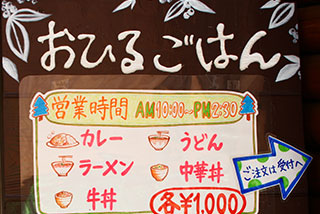 おひるごはん
営業時間 AM10:00~PM2:30
カレー うどん
ラーメン 中華丼
牛丼 各¥1,000
ご注文は受付へ